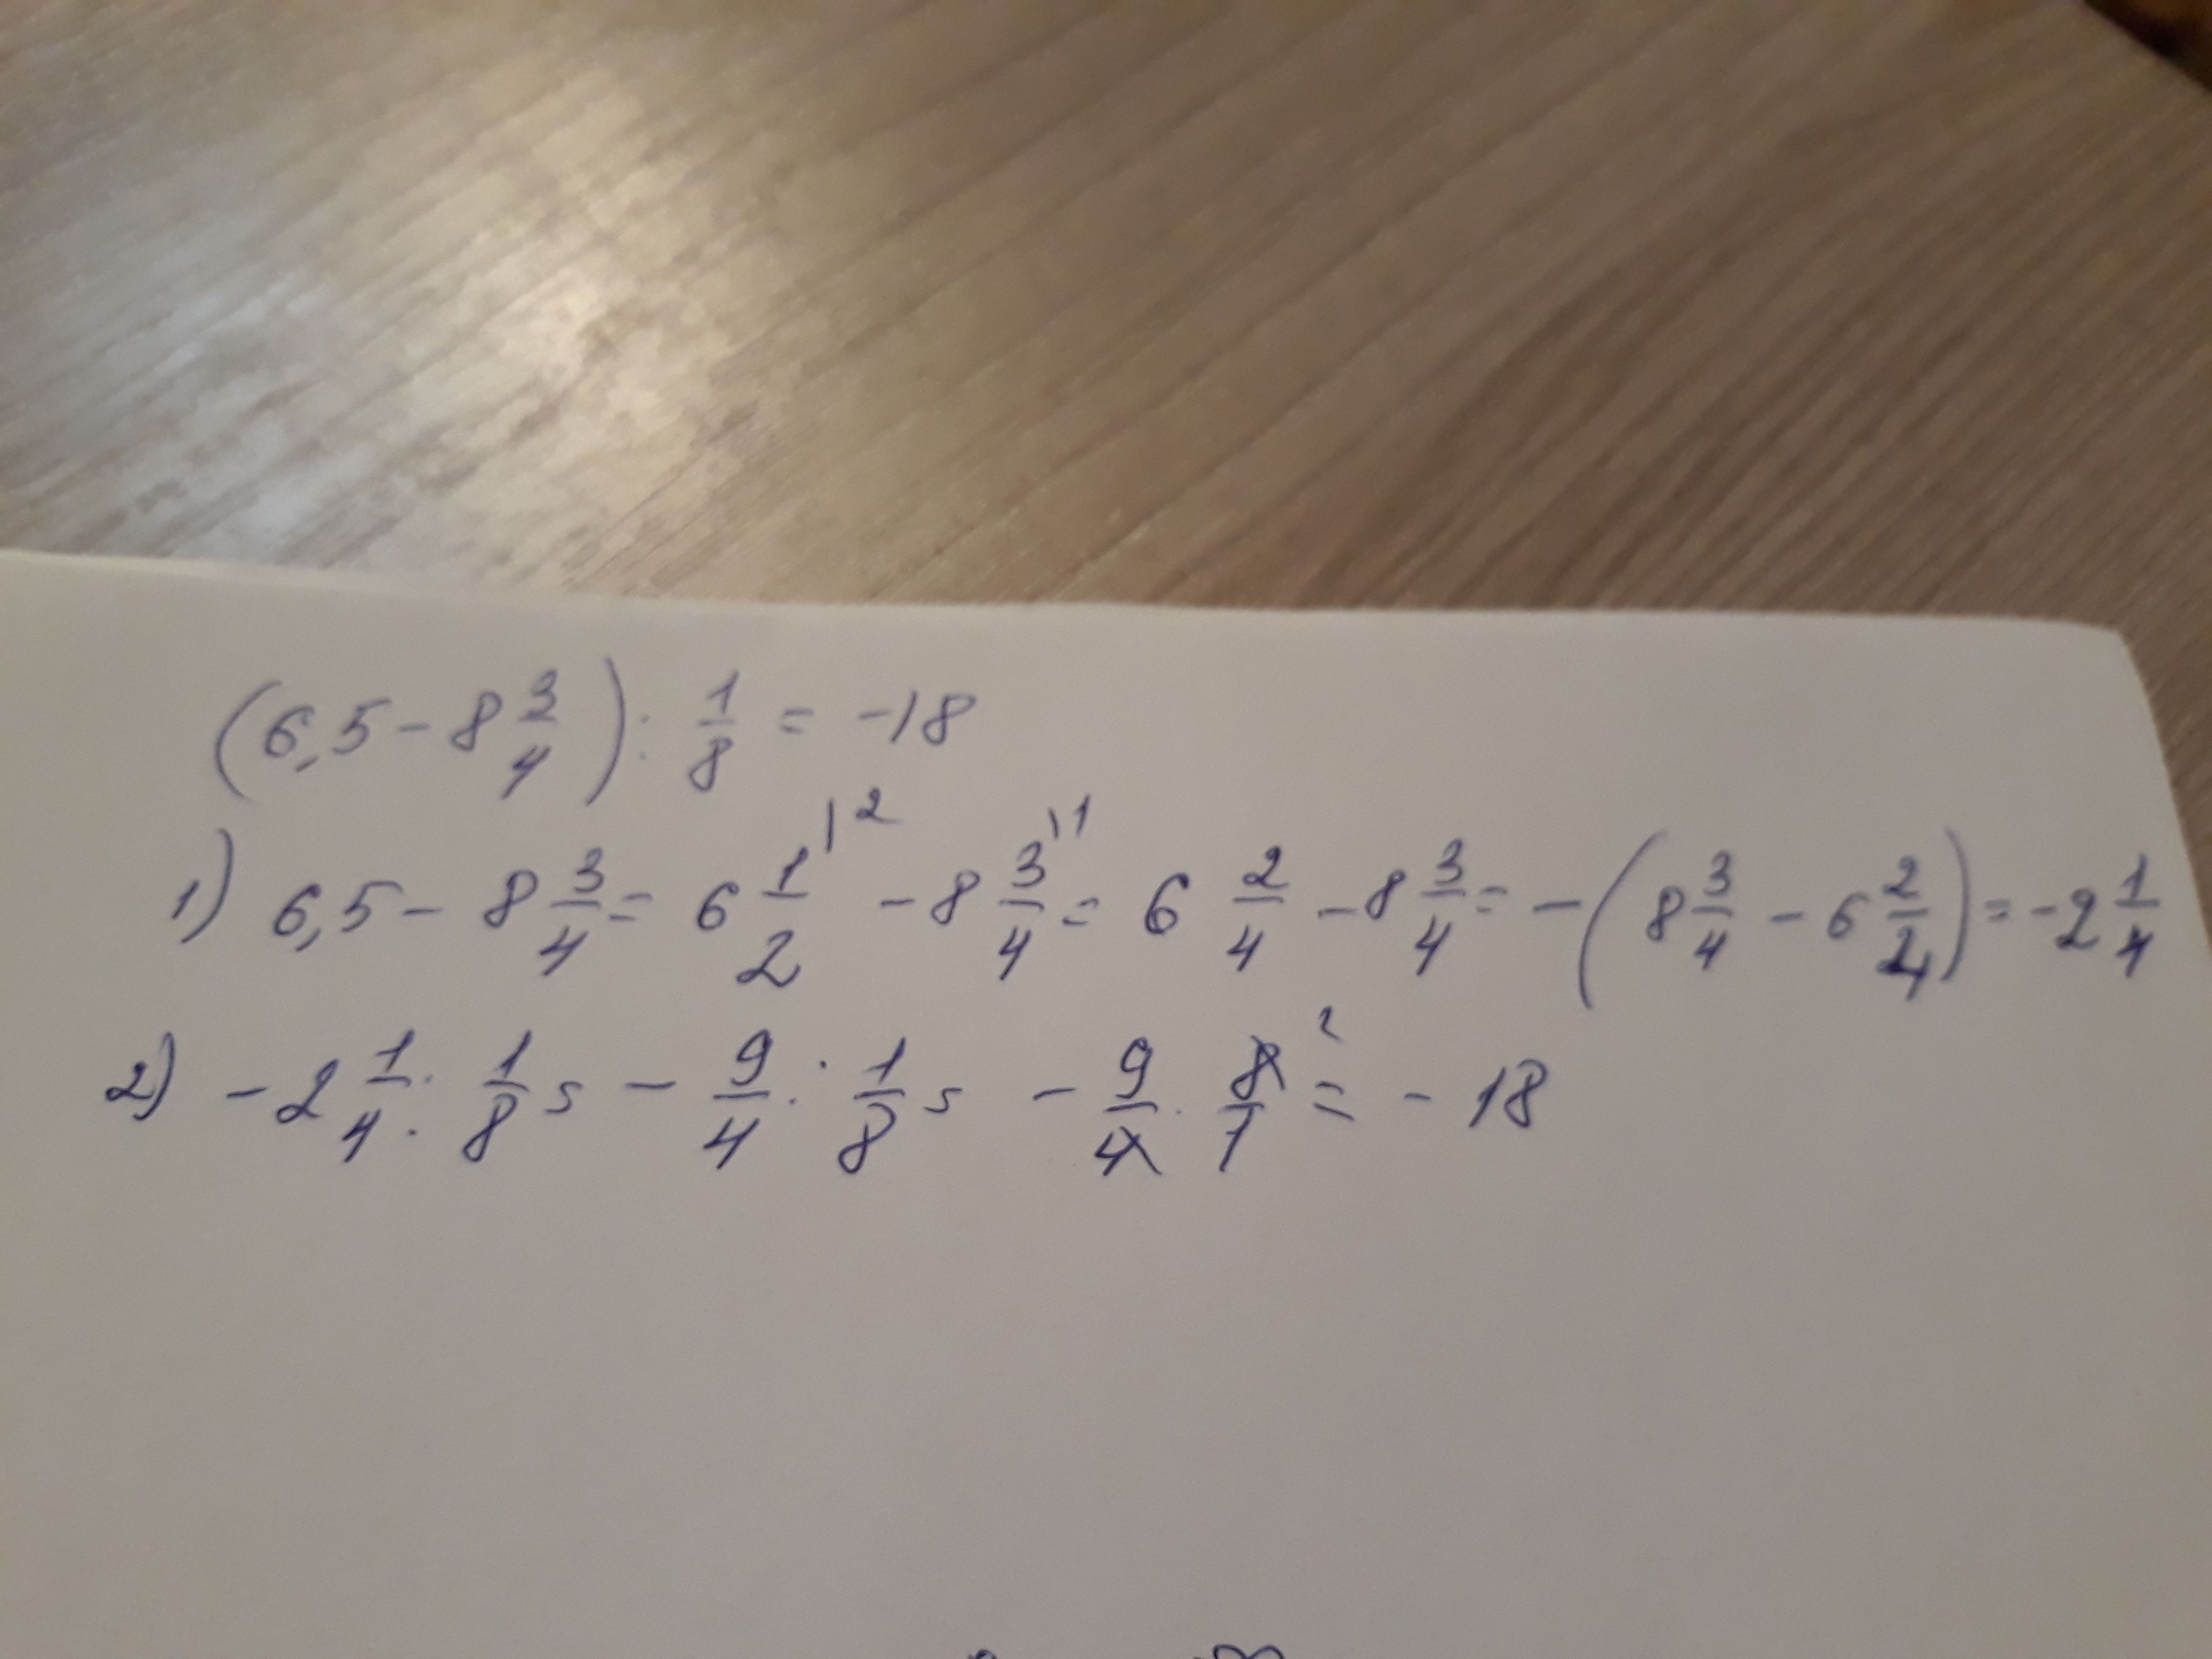 (6,5 - 8 3/4) : 1/8 = -18
1) 6,5 - 8 3/4 = 6 1/2 |2 - 8 3/4 \1 = 6 2/4 - 8 3/4 = -(8 3/4 - 6 2/4) = -2 1/4
2) -2 1/4 : 1/8 = -9/4 : 1/8 = -9/4 · 8/1 2 = -18